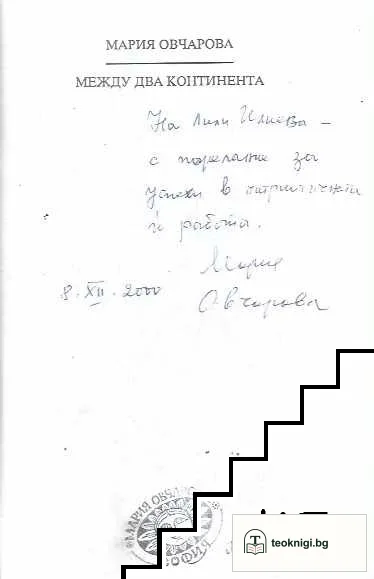 МАРИЯ ОВЧАРОВА
МЕЖДУ ДВА КОНТИНЕНТА
На Лили Илиева –
с пожелание за
успехи в
и работа.
Мария
8. XII. 2000
Овчарова
МАРИЯ ОВЧАРО
СОФИЯ
teoknigi.bg